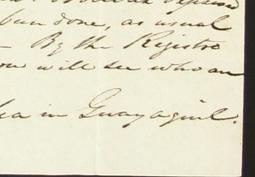 been done, as usual
— By the Registro
you will see who an
in Guayaquil.